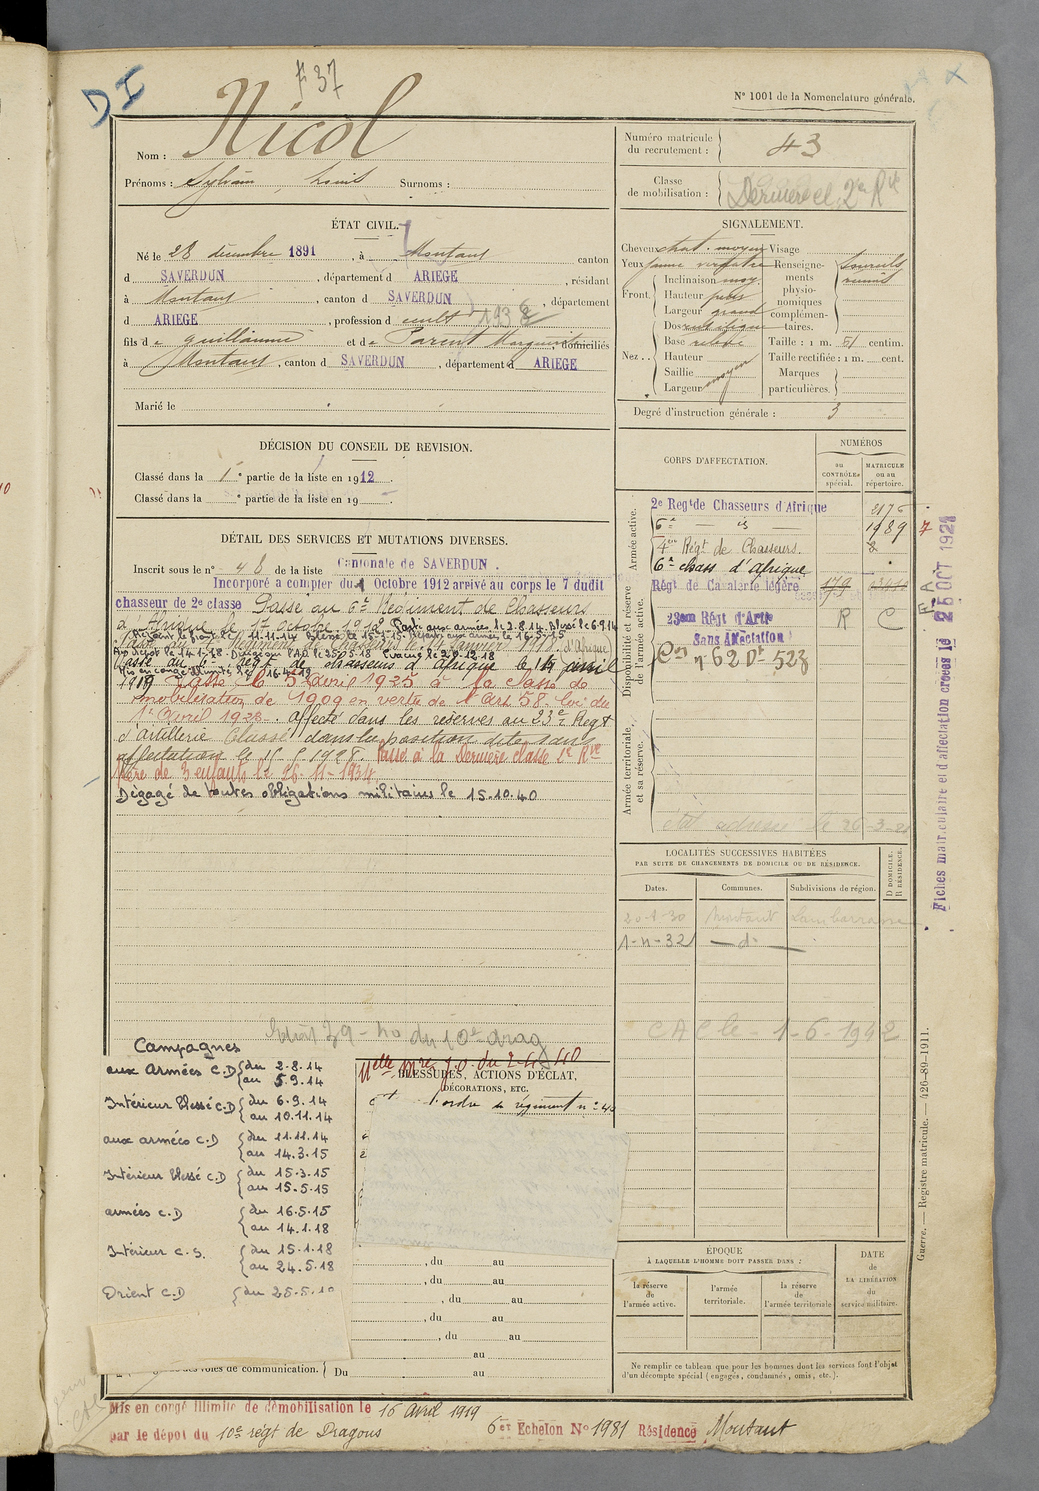 DI
F 37
N° 1001 de la Nomenclature générale.
Nom : Nicol
Prénoms : Sylvain, Louis Surnoms :
Numéro matricule du recrutement : 43
Classe de mobilisation : Dernière cl. 2e Rve
ÉTAT CIVIL.
Né le 28 décembre 1891, à Montaut canton
d SAVERDUN, département d ARIEGE, résidant
à Montaut, canton d SAVERDUN, département
d ARIEGE, profession d cult 1938
fils de Guillaume et de Parent Marguerite domiciliés
à Montaut, canton d SAVERDUN, département d ARIEGE
Marié le
SIGNALEMENT.
Cheveux chat. moyen Visage
Yeux jaune verdatre
Front. Inclinaison moy.
Hauteur petit
Largeur grand
Nez. Dos
Base relevé
Hauteur
Saillie
Largeur moyen
Renseignements physionomiques complémentaires. Sourcils réunis
Taille : 1 m. 51 centim.
Taille rectifiée : 1 m. cent.
Marques particulières.
Degré d'instruction générale : 3
DÉCISION DU CONSEIL DE REVISION.
Classé dans la 1e partie de la liste en 1912.
Classé dans la e partie de la liste en 19
DÉTAIL DES SERVICES ET MUTATIONS DIVERSES.
Inscrit sous le n° 48 de la liste Cantonale de SAVERDUN.
Incorporé a compter du 1 Octobre 1912 arrivé au corps le 7 dudit
chasseur de 2e classe Passé au 6e Régiment de Chasseurs
d'Afrique le 1er octobre 1912 Parti aux armées le 2.8.14. Blessé le 6.9.14
11.11.14 Blessé le 15-3-15. Reparti aux armées le 16.5.15
Passé au 4e Régiment de Chasseurs le 14 janvier 1918 (d'Afrique)
Passé au 6e Regt de chasseurs d'Afrique le 14 avril
Mis en congé illimité le 16.4.19
1919 Passé le 5 avril 1925 à la classe de
mobilisation de 1909 en vertu de l'art 58. loi du
1er Avril 1923. affecté dans les réserves au 23e Regt
d'artillerie Classé dans la position dite sans
affectation le 15-5-1928. Passé à la Dernière classe 2e Rve
Père de 3 enfants le 26-11-1934
Dégagé de toutes obligations militaires le 15.10.40
CORPS D'AFFECTATION.
NUMÉROS
au CONTRÔLE spécial.
MATRICULE ou au répertoire.
Armée active.
2e Regt de Chasseurs d'Afrique 2176
6e — id — 1989
4me Régt de Chasseurs.
6e chass d'Afrique
Disponibilité et réserve de l'armée active.
Régt de Cavalerie légère 179
23em Régt d'Artie R C
Sans Affectation
Con n° 62 Dt 523
Armée territoriale et sa réserve.
le 26-3-2
25 OCT 1921
Fiches matriculaire et d'affectation créées le
LOCALITÉS SUCCESSIVES HABITÉES
PAR SUITE DE CHANGEMENTS DE DOMICILE OU DE RÉSIDENCE.
Dates. Communes. Subdivisions de région. D DOMICILE. R RÉSIDENCE.
20-1-30 Montaut
1-11-32 — d° —
CAC le 1-6-1942
10e drag
Campagnes
aux Armées C.D du 2.8.14 au 5.9.14
Intérieur blessé C.D du 6.9.14 au 10.11.14
aux armées C.D du 11.11.14 au 14.3.15
Intérieur blessé C.D du 15.3.15 au 15.5.15
armées C.D du 16.5.15 au 14.1.18
Intérieur C.S. du 15.1.18 au 24.5.18
Orient C.D du 25.5.1
BLESSURES, ACTIONS D'ÉCLAT,
DÉCORATIONS, ETC.
l'ordre du régiment n°
, du au
, du au
, du au
, du au
, du au
au
des voies de communication. Du au
ÉPOQUE
À LAQUELLE L'HOMME DOIT PASSER DANS :
la réserve de l'armée active.
l'armée territoriale.
la réserve de l'armée territoriale
DATE de LA LIBÉRATION du service militaire.
Ne remplir ce tableau que pour les hommes dont les services font l'objet
d'un décompte spécial (engagés, condamnés, omis, etc.).
Guerre. — Registre matricule. — 426-89-1911.
Mis en congé illimité de démobilisation le 16 Avril 1919
par le dépôt du 10e régt de Dragons 6e Echelon N° 1981 Résidence Montaut